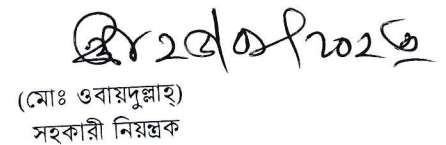 (মোঃ ওবায়দুল্লাহ্)
সহকারী নিয়ন্ত্রক